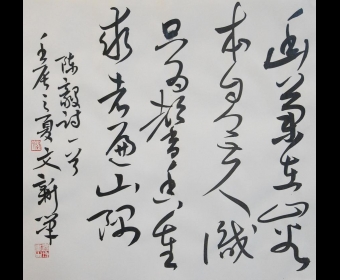 幽蘭在山谷
本自無人識
只為馨香重
求者遍山隅
陳毅詩一首
壬辰之夏文新筆